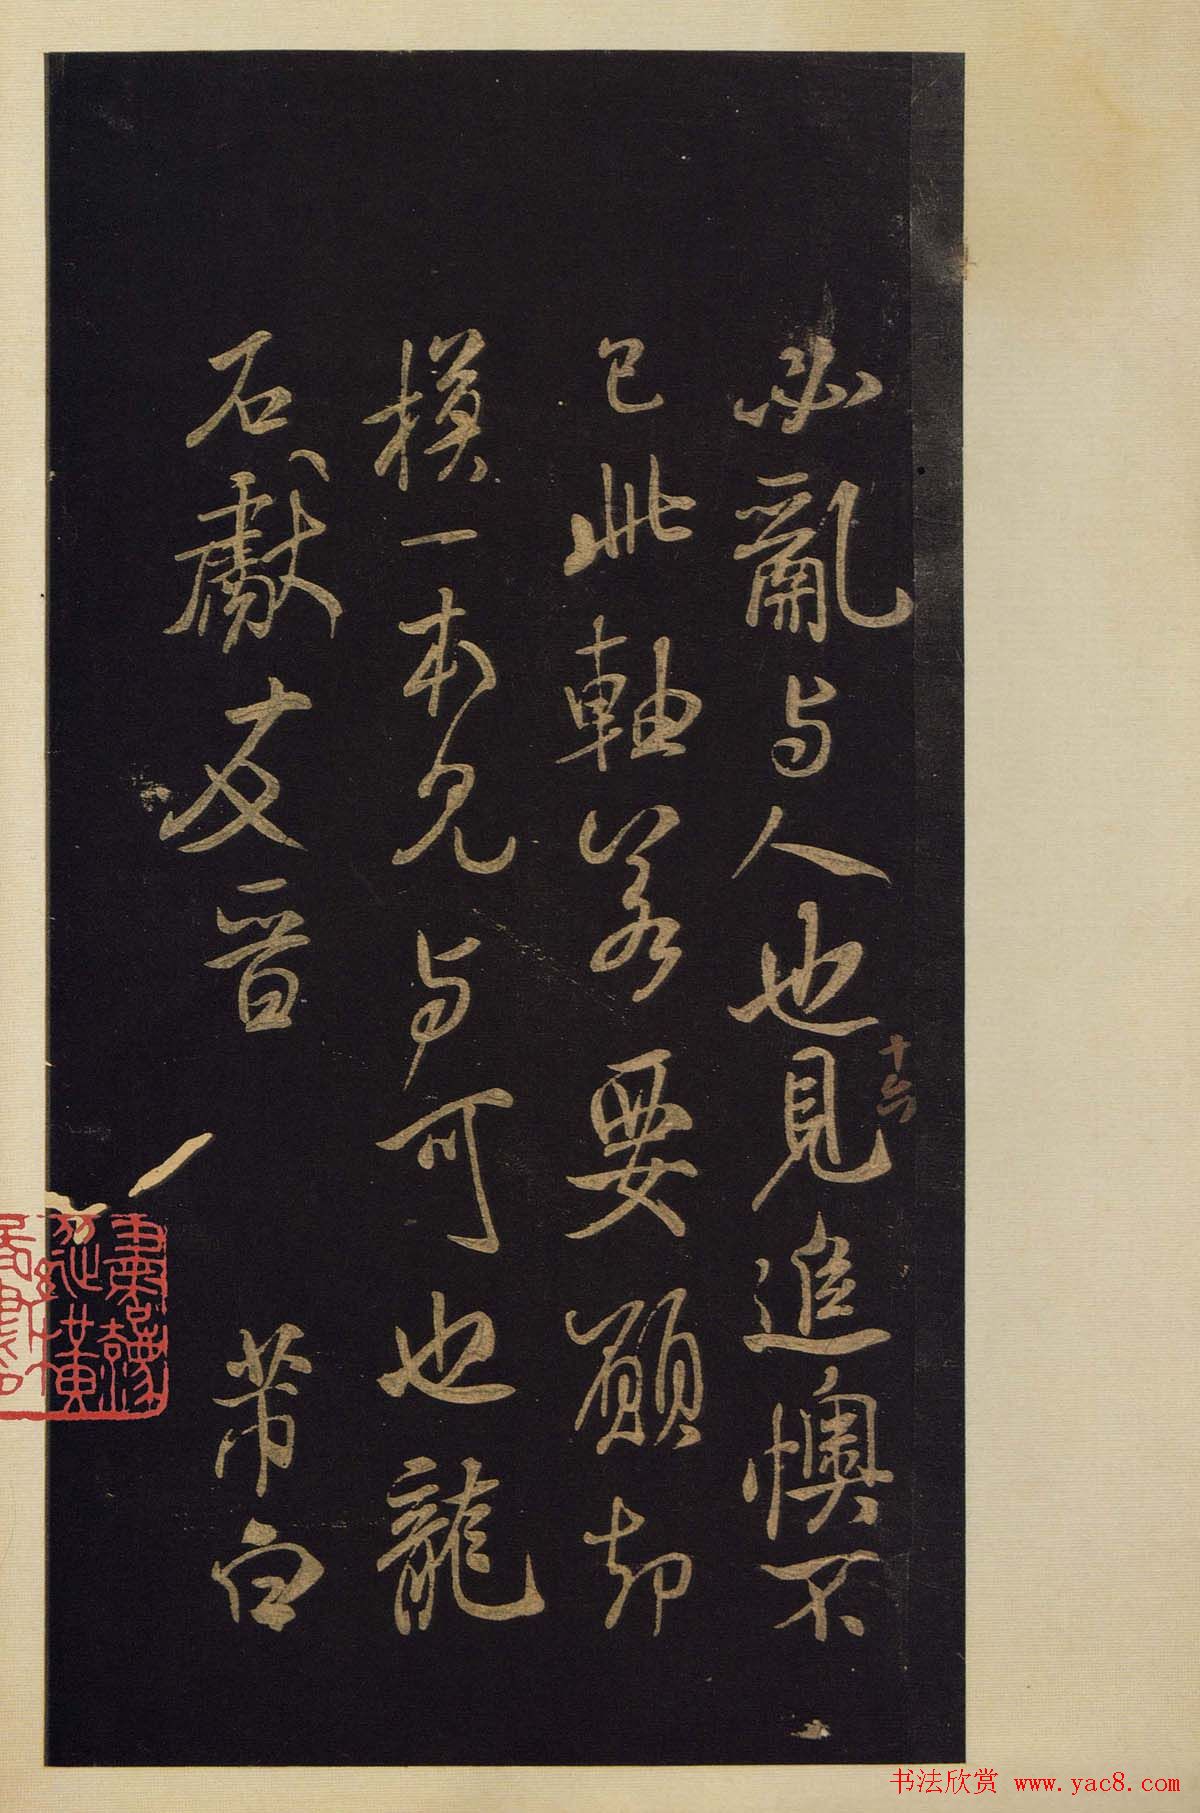 必亂与人也見追懊不
已此軸若要顧却
模一本見与可也龍
石獻友晉
芾白
十六
书法欣赏 www.yac8.com